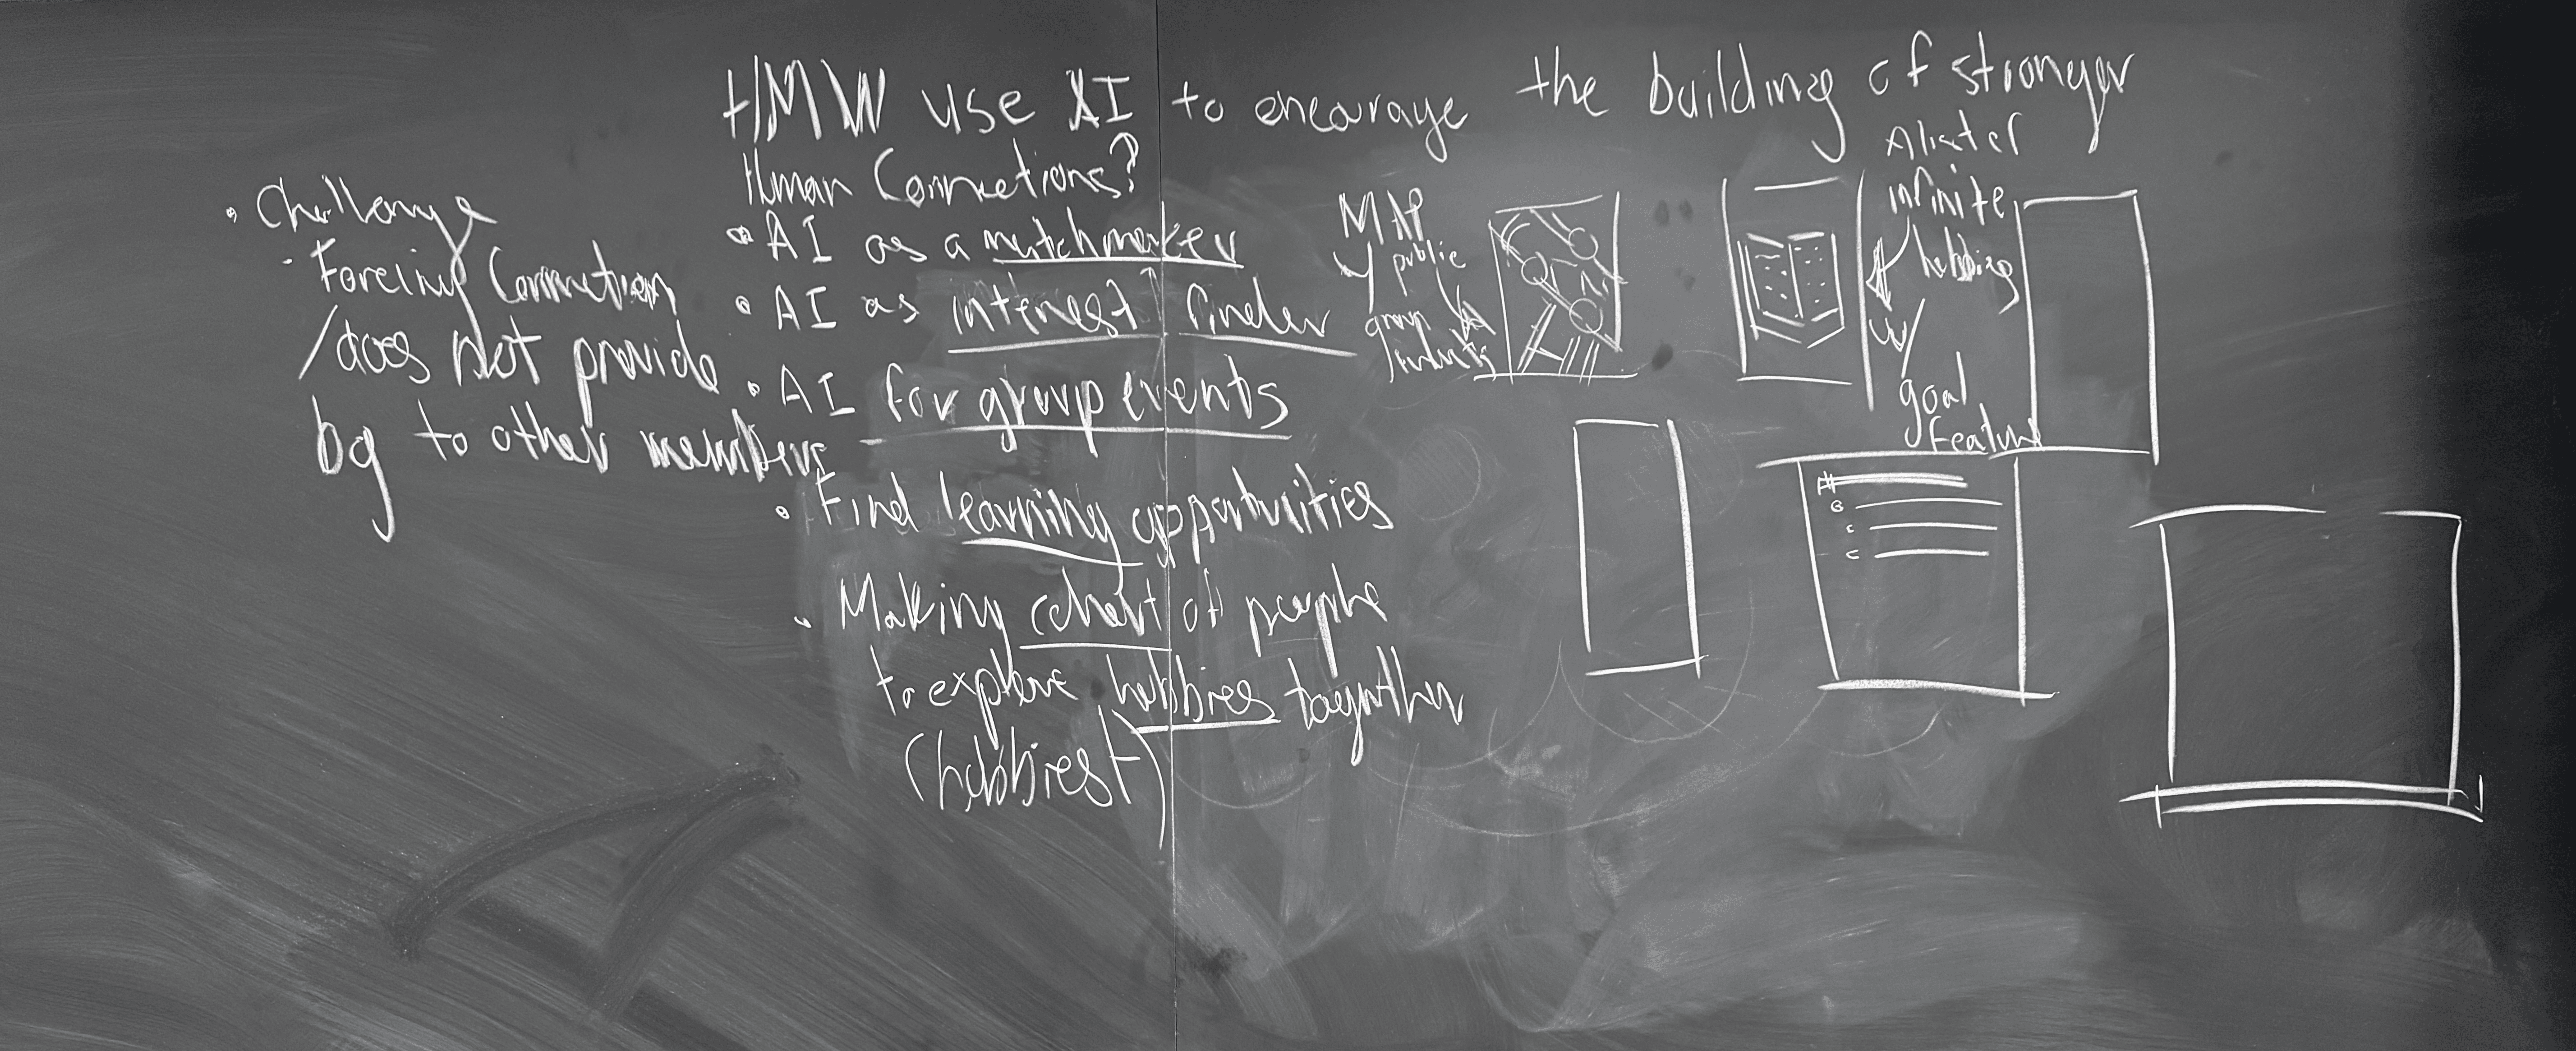 HMW use AI to encourage the building of stronger
Human Connections?
• AI as a matchmaker
• AI as interest finder
• AI for group events
• Find learning opportunities
• Making cohort of people
to explore hobbies together
(hobbiest)
• Challenge
- Forcing Connection
/does not provide
bg to other members
MAP
public
group
A list of
infinite
hobbies
w/
goal
Feature